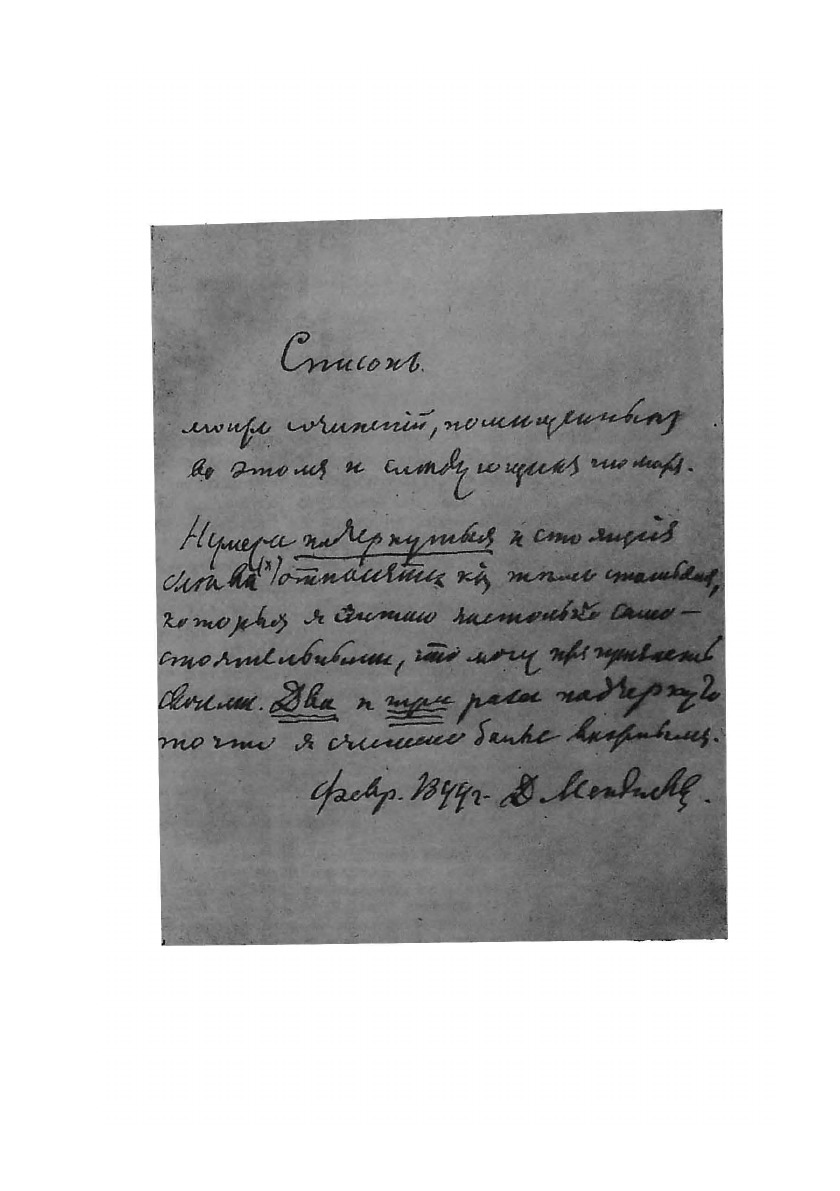 Списокъ
моихъ сочиненій, помѣщенныхъ
въ этомъ и слѣдующихъ томахъ.
Нумера подчеркнутыя и стоящія
слѣва (x) относятся къ тѣмъ статьямъ,
которыя я считаю настолько само-
стоятельными, что могу признавать
своими. Два и три раза подчеркнуто
то что я считаю болѣе важнымъ.
Февр. 1899 г. Д Менделѣевъ.